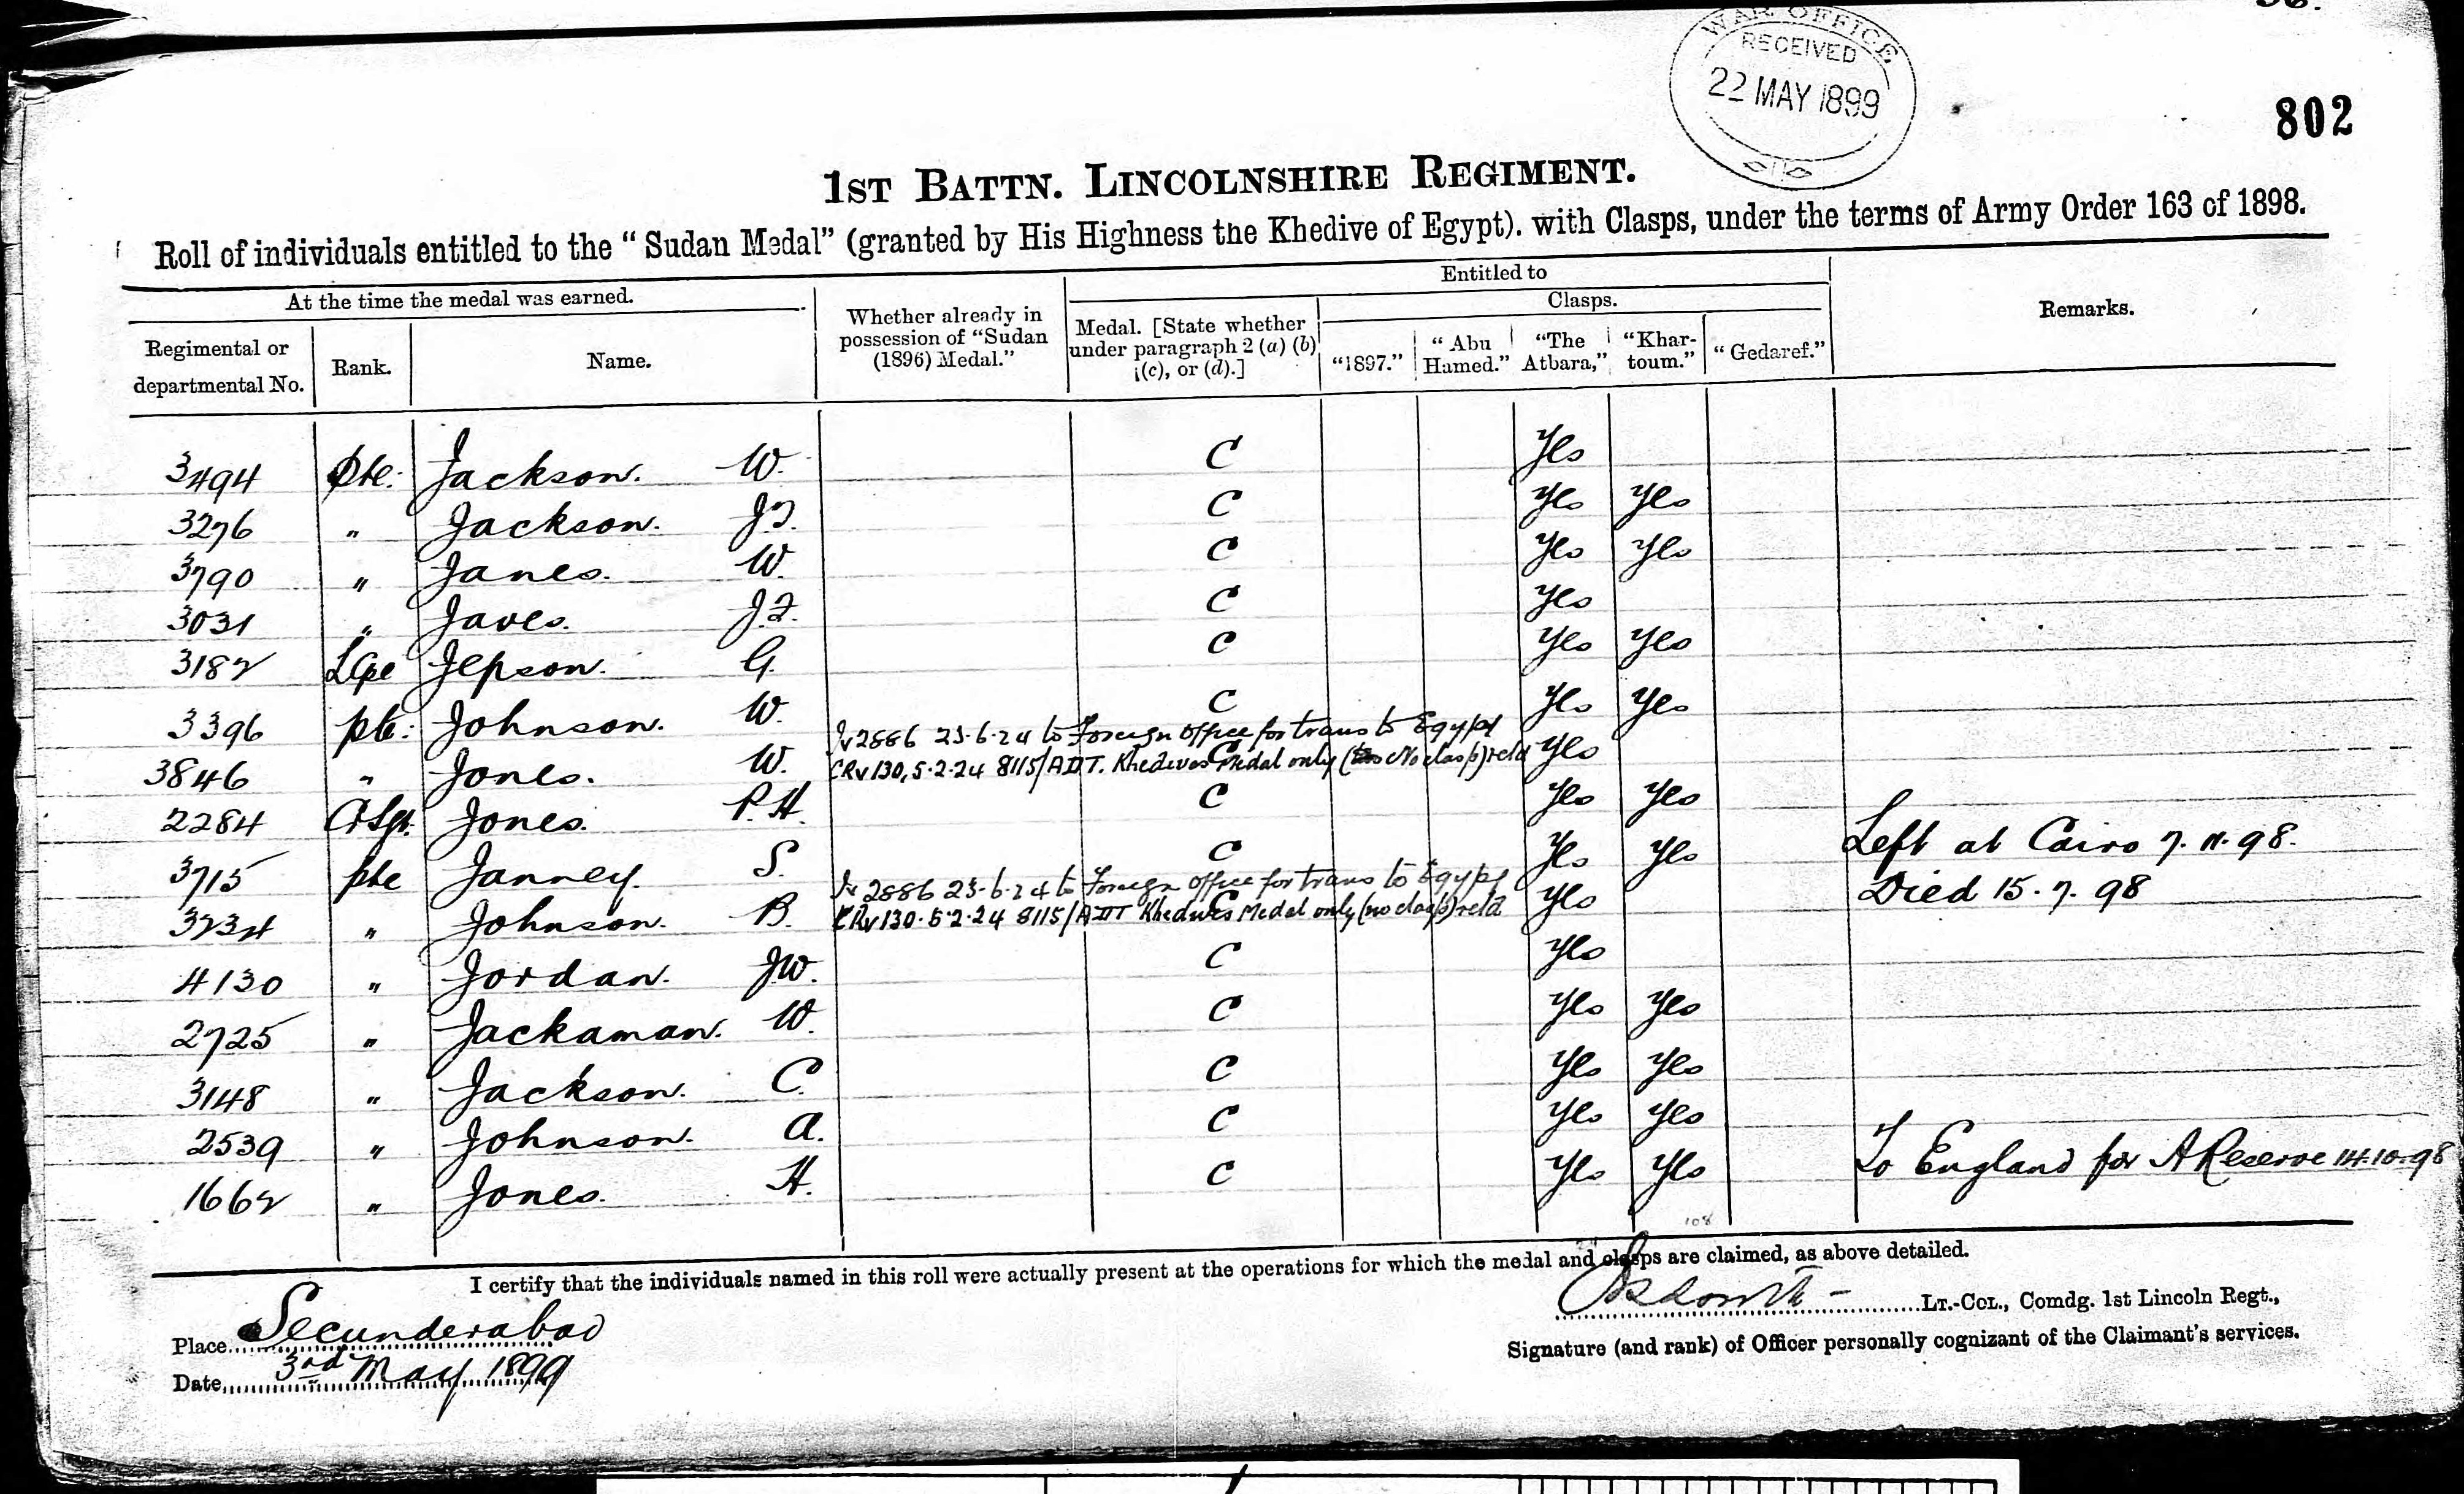 WAR OFFICE
RECEIVED
22 MAY 1899
802
1ST BATTN. LINCOLNSHIRE REGIMENT.
Roll of individuals entitled to the "Sudan Medal" (granted by His Highness the Khedive of Egypt). with Clasps, under the terms of Army Order 163 of 1898.
At the time the medal was earned.
Regimental or departmental No.
Rank.
Name.
Whether already in possession of "Sudan (1896) Medal."
Entitled to
Medal. [State whether under paragraph 2 (a) (b) (c), or (d).]
Clasps.
"1897."
"Abu Hamed."
"The Atbara,"
"Khar-toum."
"Gedaref."
Remarks.
3494 Pte. Jackson. W. C Yes
3276 " Jackson. C Yes Yes
3790 " Janes. W. C Yes Yes
3031 " Javes. C Yes
3182 LCpe Jepson. G. C Yes Yes
3396 pte: Johnson. W. C Yes Yes
2886 23-6-24 to Foreign Office for trans to Egypt
3846 " Jones. W. C Yes
CRv130, 5-2-24 8115/ADT. Khedives Medal only (No clasp) retd
2284 CrSgt. Jones. P.H. C Yes Yes
3715 pte Janney. S. C Yes Yes Left at Cairo 7.11.98.
2886 23-6-24 to Foreign Office for trans to Egypt
3234 " Johnson. B. C Yes Died 15.7.98
CRv130-5-2-24 8115/ADT Khedives Medal only (no clasp) retd
4130 " Jordan. J.W. C Yes
2725 " Jackaman. W. C Yes Yes
3148 " Jackson. C. C Yes Yes
2539 " Johnson. A. C Yes Yes
1662 " Jones. H. C Yes Yes To England for A Reserve 14.10.98
108
I certify that the individuals named in this roll were actually present at the operations for which the medal and clasps are claimed, as above detailed.
LT.-COL., Comdg. 1st Lincoln Regt.,
Place Secunderabad
Signature (and rank) of Officer personally cognizant of the Claimant's services.
Date 3rd May 1899